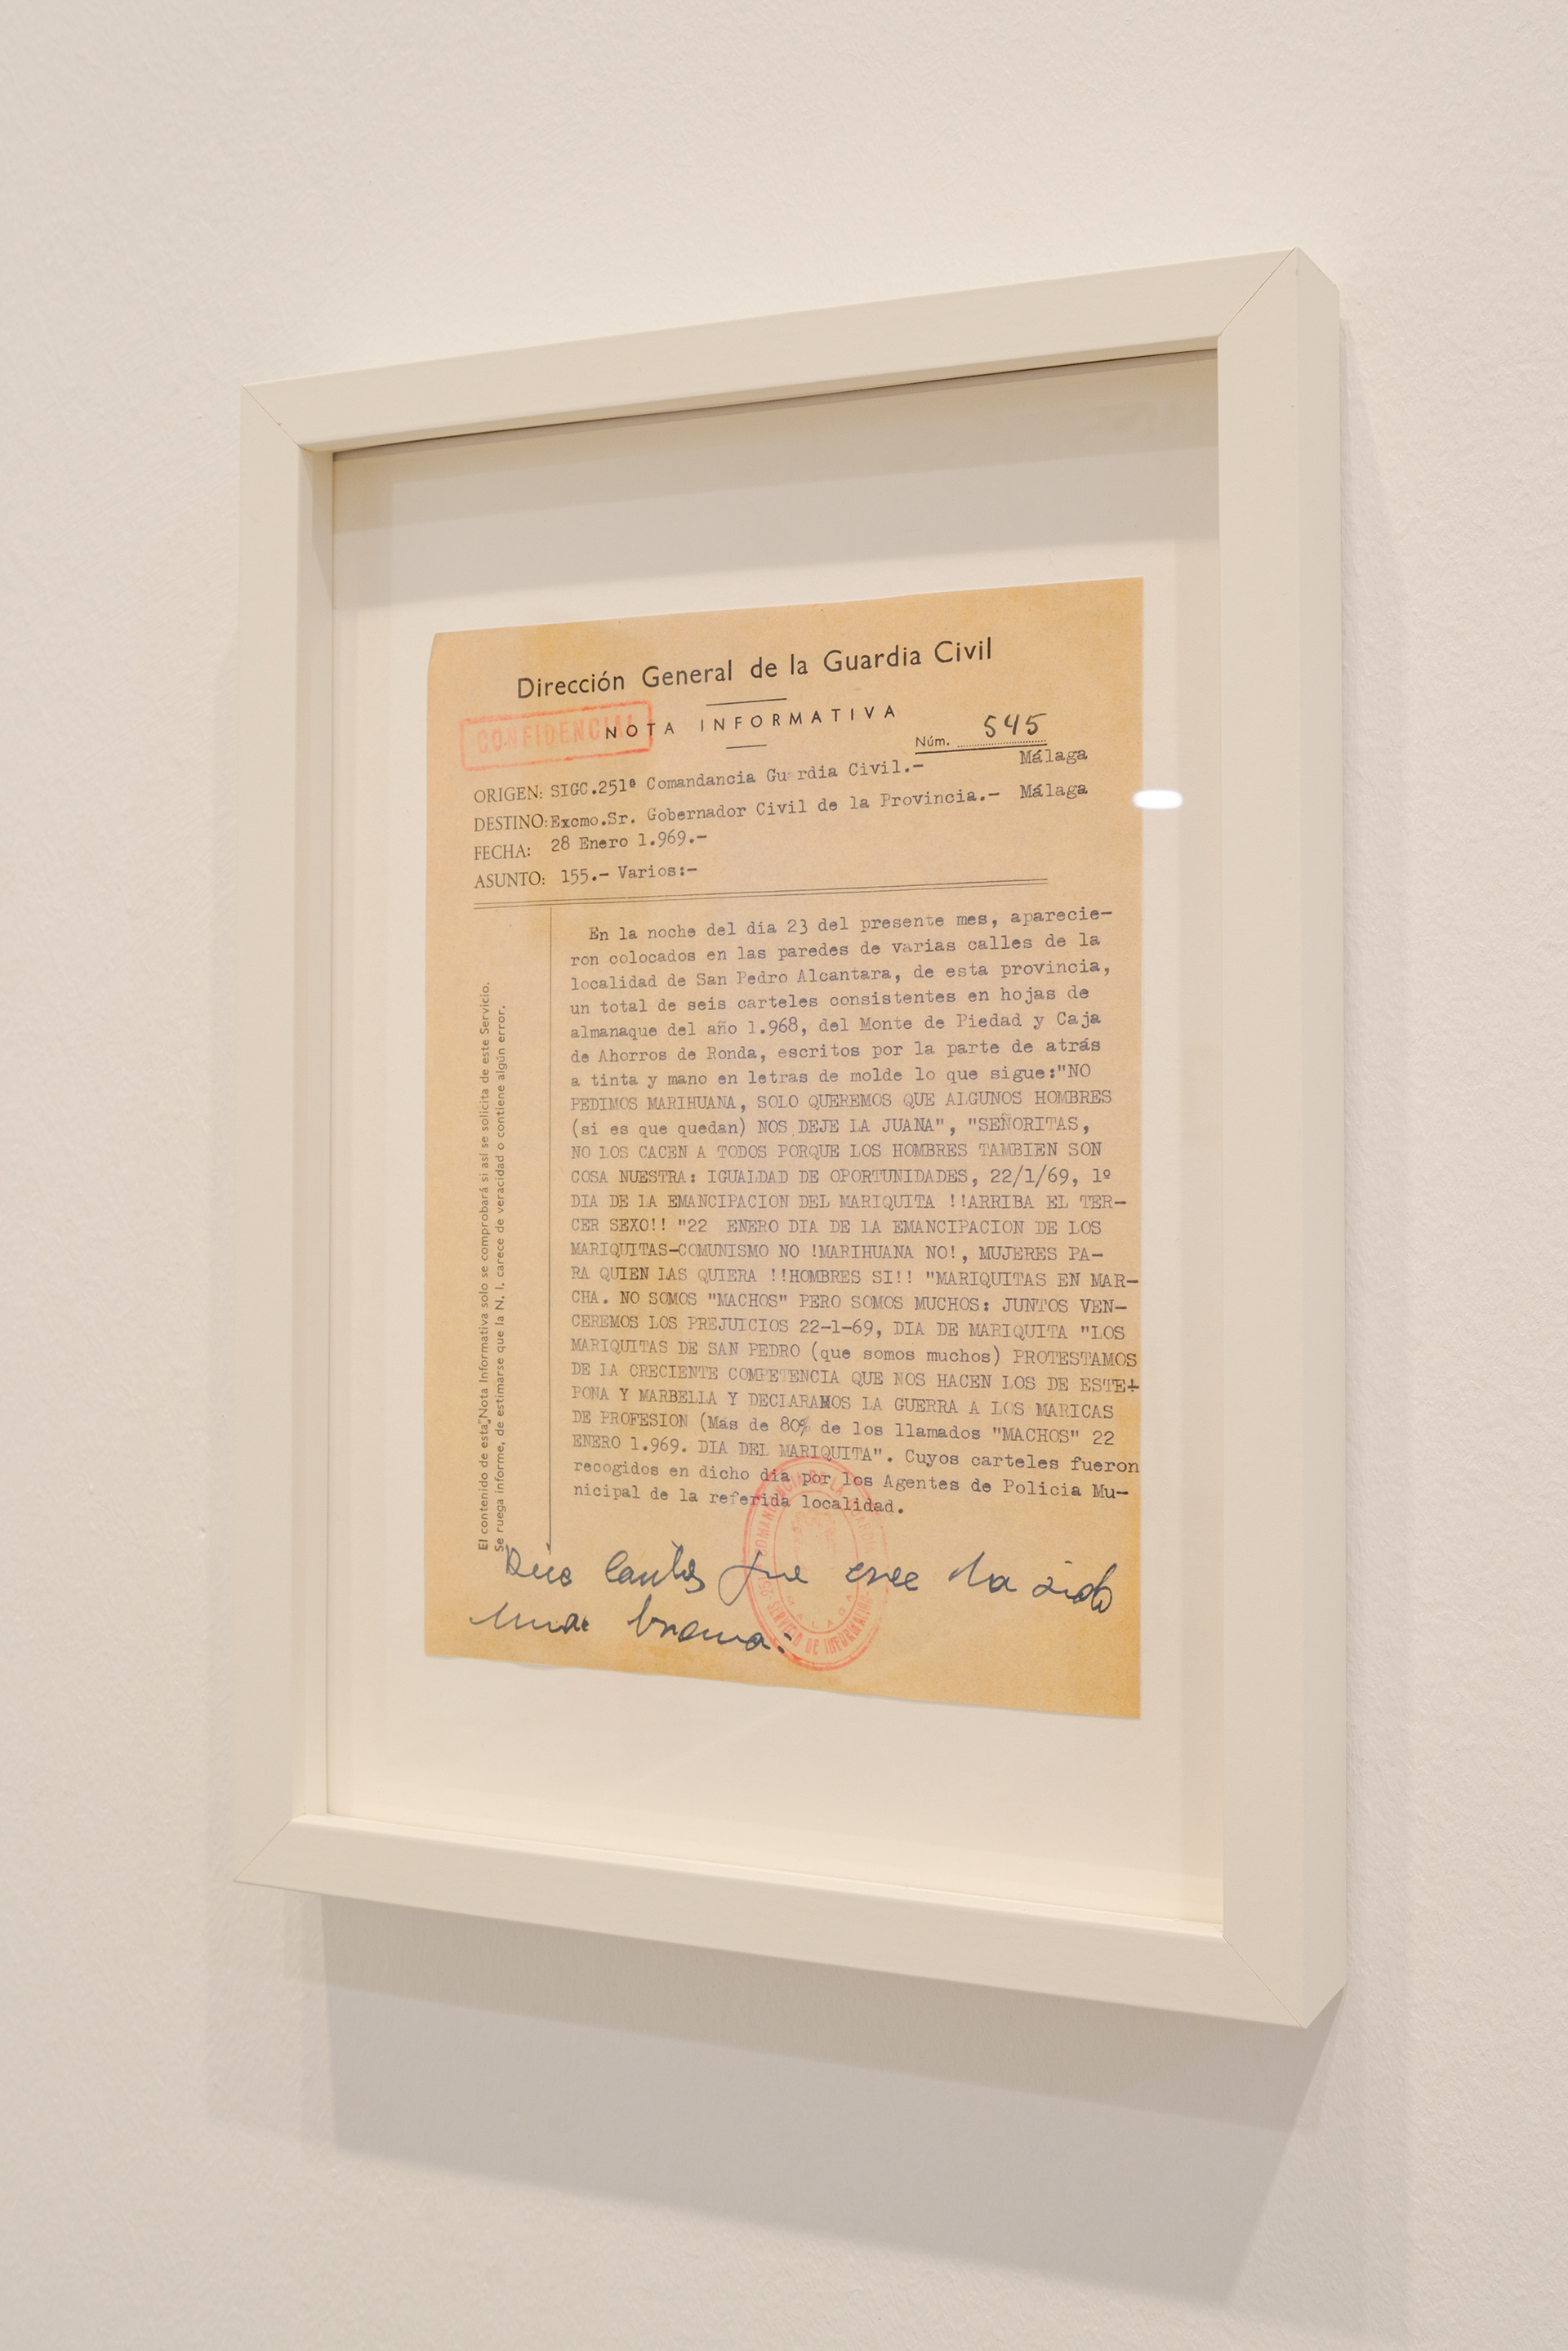 Dirección General de la Guardia Civil
CONFIDENCIAL
NOTA INFORMATIVA
Núm. 545
ORIGEN: SIGC.251ª Comandancia Guardia Civil.- Málaga
DESTINO: Excmo.Sr. Gobernador Civil de la Provincia.- Málaga
FECHA: 28 Enero 1.969.-
ASUNTO: 155.- Varios:-
En la noche del dia 23 del presente mes, aparecie-
ron colocados en las paredes de varias calles de la
localidad de San Pedro Alcantara, de esta provincia,
un total de seis carteles consistentes en hojas de
almanaque del año 1.968, del Monte de Piedad y Caja
de Ahorros de Ronda, escritos por la parte de atrás
a tinta y mano en letras de molde lo que sigue:"NO
PEDIMOS MARIHUANA, SOLO QUEREMOS QUE ALGUNOS HOMBRES
(si es que quedan) NOS DEJE LA JUANA", "SEÑORITAS,
NO LOS CACEN A TODOS PORQUE LOS HOMBRES TAMBIEN SON
COSA NUESTRA: IGUALDAD DE OPORTUNIDADES, 22/1/69, 1º
DIA DE LA EMANCIPACION DEL MARIQUITA !!ARRIBA EL TER-
CER SEXO!! "22 ENERO DIA DE LA EMANCIPACION DE LOS
MARIQUITAS-COMUNISMO NO !MARIHUANA NO!, MUJERES PA-
RA QUIEN LAS QUIERA !!HOMBRES SI!! "MARIQUITAS EN MAR-
CHA. NO SOMOS "MACHOS" PERO SOMOS MUCHOS: JUNTOS VEN-
CEREMOS LOS PREJUICIOS 22-1-69, DIA DE MARIQUITA "LOS
MARIQUITAS DE SAN PEDRO (que somos muchos) PROTESTAMOS
DE LA CRECIENTE COMPETENCIA QUE NOS HACEN LOS DE ESTE+
PONA Y MARBELLA Y DECLARAMOS LA GUERRA A LOS MARICAS
DE PROFESION (Más de 80% de los llamados "MACHOS" 22
ENERO 1.969. DIA DEL MARIQUITA". Cuyos carteles fueron
recogidos en dicho dia por los Agentes de Policia Mu-
nicipal de la referida localidad.
El contenido de esta Nota Informativa solo se comprobará si así se solicita de este Servicio.
Se ruega informe, de estimarse que la N. I. carece de veracidad o contiene algún error.
251 COMANDANCIA DE LA GUARDIA
SERVICIO DE INFORMACION
MALAGA
que cree ha sido
una broma.